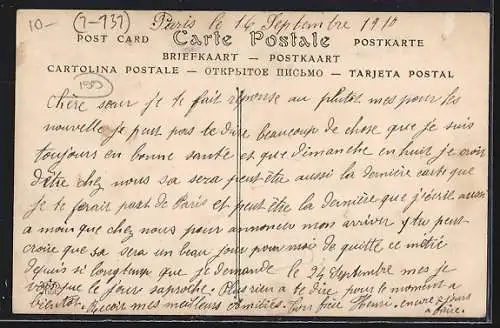 10- (7-737) Paris le 14 Septembre 1910
POST CARD Carte Postale POSTKARTE
BRIEFKAART — POSTKAART
CARTOLINA POSTALE — ОТКРЫТОЕ ПИСЬМО — TARJETA POSTAL
Chère sœur je te fait réponse au plutôt mes pour les
nouvelle je peut pas te dire beaucoup de chose que je suis
toujours en bonne santé et que dimanche en huit je crois
d'être chez nous sa sera peut-être aussi la dernière carte que
je te ferait part de Paris et peut être la dernière que j'écrit aussi
a moin que chez nous pour annoncer mon arriver y tu peut
croire que sa sera un beau jour pour moi de quitté ce métié
depuis si longtemps que je demande le 24 Septembre mes je
voit que le jour saproche. Plus rien a te dire pour le moment a
bientôt. Reçoir mes meilleurs amitiées. Ton frère Henri. encore 8 jours
a faire.